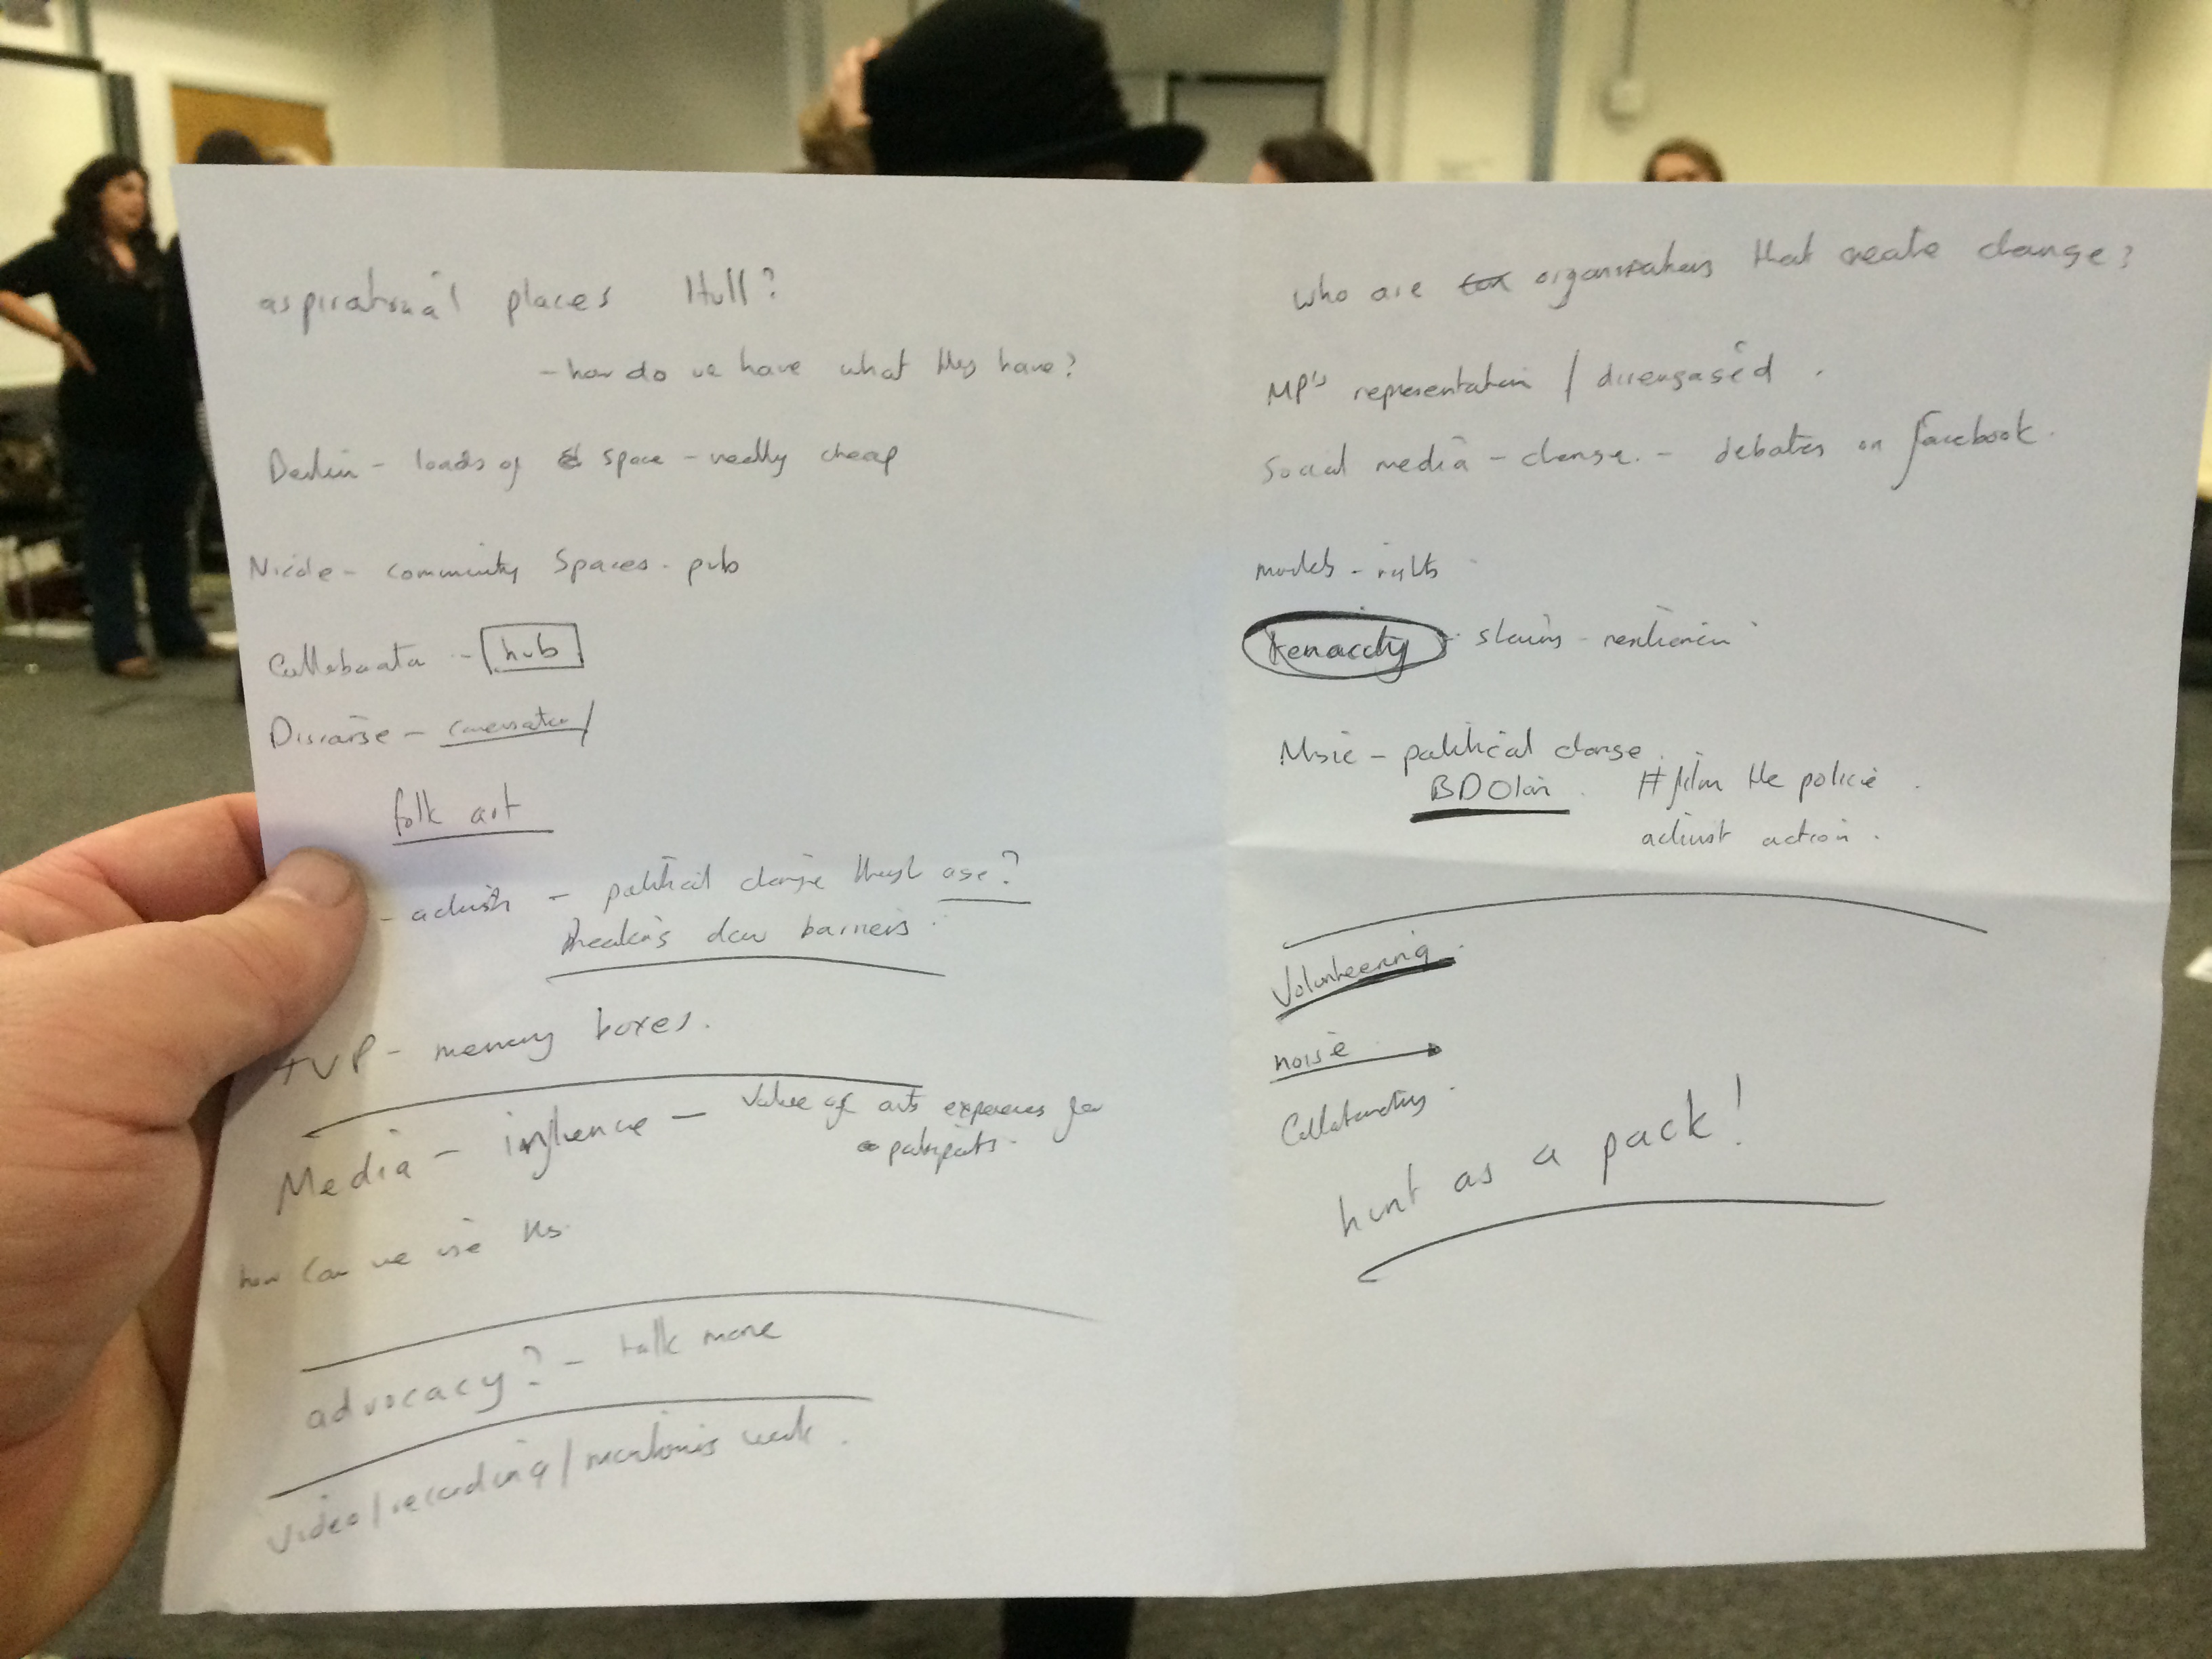 aspirational places Hull?
- how do we have what they have?
loads of space - really cheap
Nicole - community Spaces - pub
hub
Discourse - conversation /
folk art
- political change through age?
breaking down barriers
TVP - memory boxes.
Media - influence - value of arts experiences for
participants.
how can we use this
advocacy? - talk more
video/recording/ work.
who are organisations that create change?
MP's representation / disengaged.
Social media - change. - debates on facebook.
models -
tenacity -
Music - political change.
#film the police
activist action.
Volunteering.
noise
hunt as a pack!